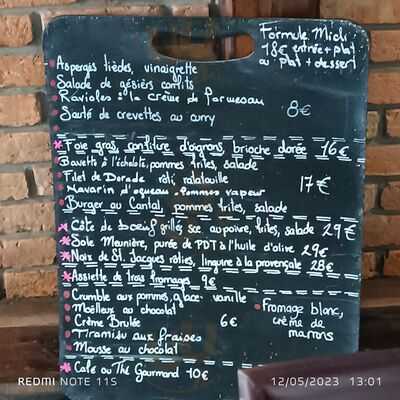 Formule Midi
18€ entrée + plat
ou plat + dessert
Asperges tièdes, vinaigrette
Salade de gésiers confits
Ravioles à la crème de Parmesan
Sauté de crevettes au curry
8€
Foie gras, confiture d'oignons, brioche dorée 16€
Bavette à l'échalote, pommes frites, salade
Filet de Dorade rôti, ratatouille
17€
Navarin d'agneau, Pommes vapeur
Burger au Cantal, pommes frites, salade
Côte de boeuf grillée, sce au poivre, frites, salade 29€
Sole Meunière, purée de PDT à l'huile d'olive 29€
Noix de St. Jacques rôties, linguine à la provençale 28€
Assiette de trois fromages 9€
Crumble aux pommes, glace vanille
Moëlleux au chocolat
Crème Brulée
6€
Tiramisu aux fraises
Mousse au chocolat
Fromage blanc,
crème de
marrons
Café ou Thé Gourmand 10€
REDMI NOTE 11S
12/05/2023 13:01